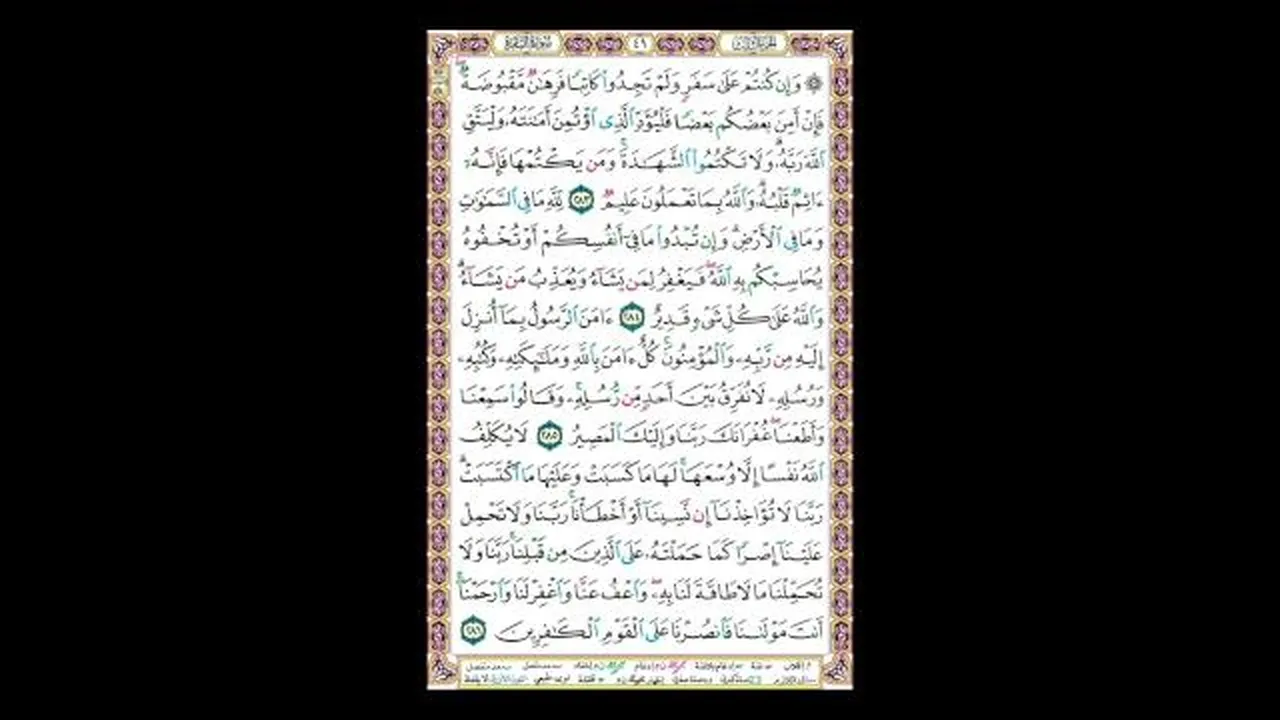 سورة البقرة ٤١ الجزء الثالث
۞ وَإِن كُنتُمْ عَلَىٰ سَفَرٍ وَلَمْ تَجِدُوا۟ كَاتِبًا فَرِهَـٰنٌ مَّقْبُوضَةٌ ۖ
فَإِنْ أَمِنَ بَعْضُكُم بَعْضًا فَلْيُؤَدِّ ٱلَّذِى ٱؤْتُمِنَ أَمَـٰنَتَهُۥ وَلْيَتَّقِ
ٱللَّهَ رَبَّهُۥ ۗ وَلَا تَكْتُمُوا۟ ٱلشَّهَـٰدَةَ ۚ وَمَن يَكْتُمْهَا فَإِنَّهُۥٓ
ءَاثِمٌ قَلْبُهُۥ ۗ وَٱللَّهُ بِمَا تَعْمَلُونَ عَلِيمٌ ٢٨٣ لِّلَّهِ مَا فِى ٱلسَّمَـٰوَٰتِ
وَمَا فِى ٱلْأَرْضِ ۗ وَإِن تُبْدُوا۟ مَا فِىٓ أَنفُسِكُمْ أَوْ تُخْفُوهُ
يُحَاسِبْكُم بِهِ ٱللَّهُ ۖ فَيَغْفِرُ لِمَن يَشَآءُ وَيُعَذِّبُ مَن يَشَآءُ ۗ
وَٱللَّهُ عَلَىٰ كُلِّ شَىْءٍ قَدِيرٌ ٢٨٤ ءَامَنَ ٱلرَّسُولُ بِمَآ أُنزِلَ
إِلَيْهِ مِن رَّبِّهِۦ وَٱلْمُؤْمِنُونَ ۚ كُلٌّ ءَامَنَ بِٱللَّهِ وَمَلَـٰٓئِكَتِهِۦ وَكُتُبِهِۦ
وَرُسُلِهِۦ لَا نُفَرِّقُ بَيْنَ أَحَدٍ مِّن رُّسُلِهِۦ ۚ وَقَالُوا۟ سَمِعْنَا
وَأَطَعْنَا ۖ غُفْرَانَكَ رَبَّنَا وَإِلَيْكَ ٱلْمَصِيرُ ٢٨٥ لَا يُكَلِّفُ
ٱللَّهُ نَفْسًا إِلَّا وُسْعَهَا ۚ لَهَا مَا كَسَبَتْ وَعَلَيْهَا مَا ٱكْتَسَبَتْ ۗ
رَبَّنَا لَا تُؤَاخِذْنَآ إِن نَّسِينَآ أَوْ أَخْطَأْنَا ۚ رَبَّنَا وَلَا تَحْمِلْ
عَلَيْنَآ إِصْرًا كَمَا حَمَلْتَهُۥ عَلَى ٱلَّذِينَ مِن قَبْلِنَا ۚ رَبَّنَا وَلَا
تُحَمِّلْنَا مَا لَا طَاقَةَ لَنَا بِهِۦ ۖ وَٱعْفُ عَنَّا وَٱغْفِرْ لَنَا وَٱرْحَمْنَآ ۚ
أَنتَ مَوْلَىٰنَا فَٱنصُرْنَا عَلَى ٱلْقَوْمِ ٱلْكَـٰفِرِينَ ٢٨٦